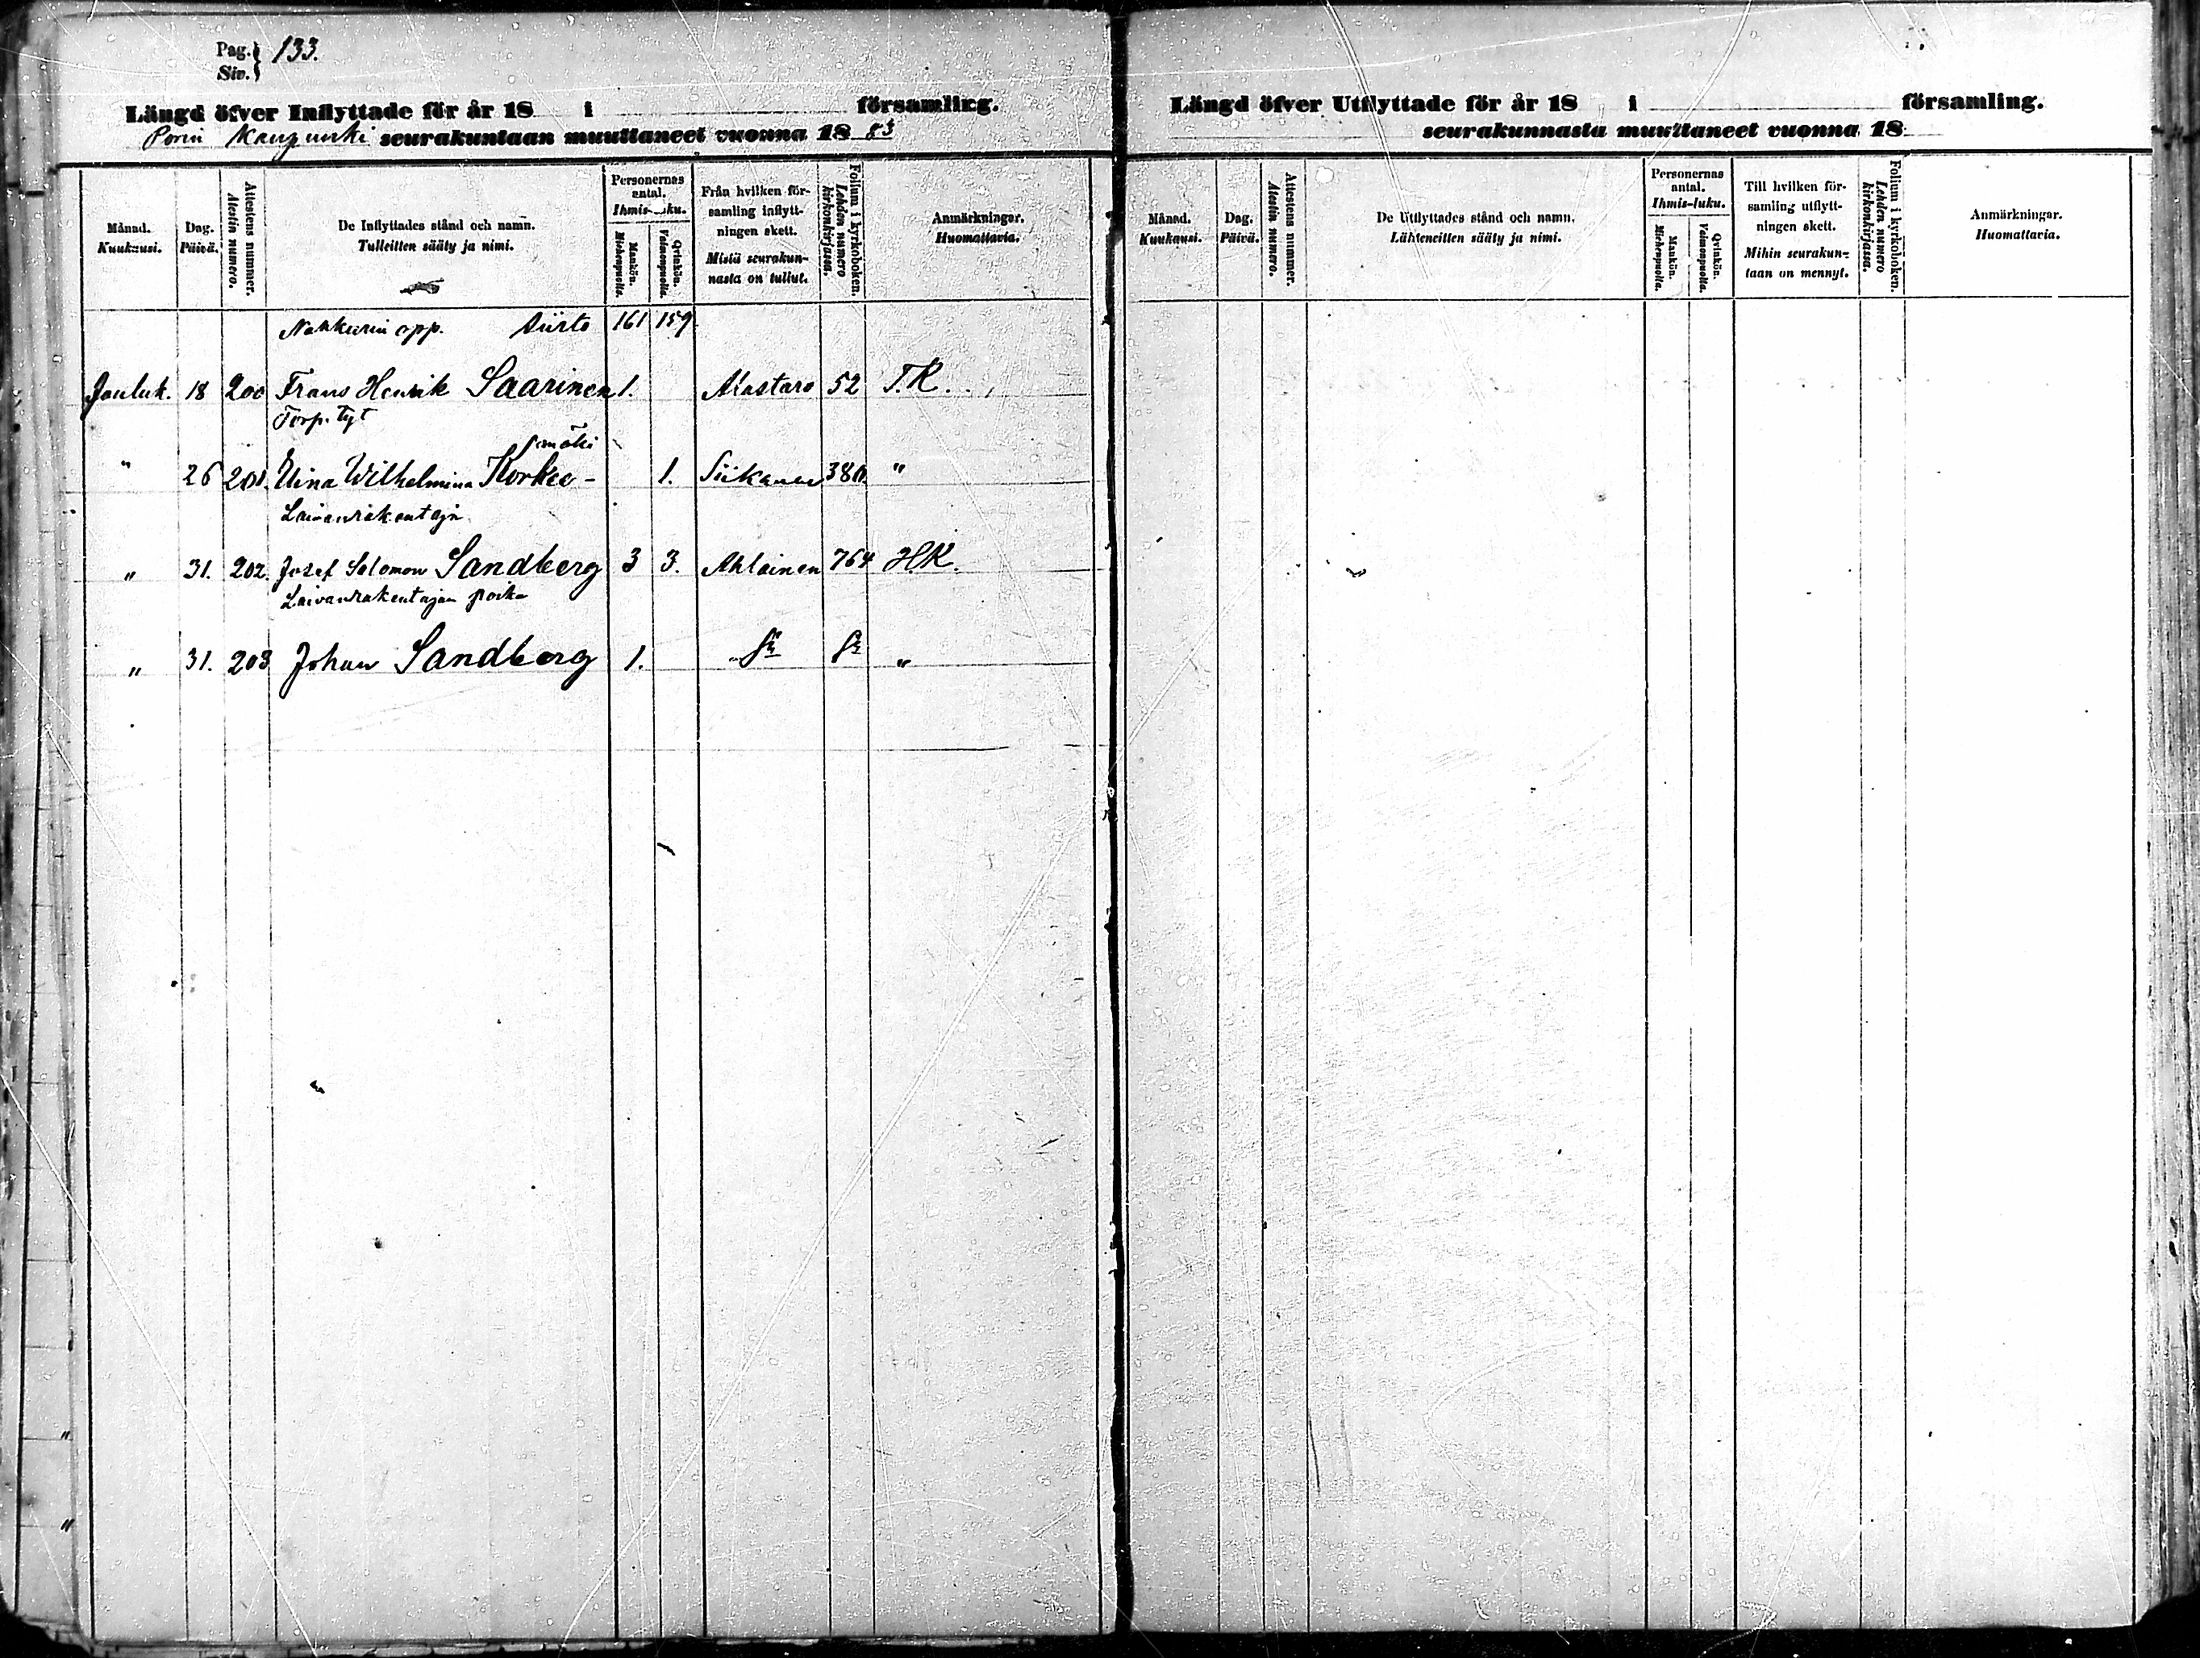 Pag. 133.
Siv.
Längd öfver Inflyttade för år 18 i församling.
Porin Kaupunki seurakuntaan muuttaneet vuonna 1883
Månad. Kuukausi.
Dag. Päivä.
Attestens nummer. Atestin numero.
De Inflyttades stånd och namn.
Tulleitten sääty ja nimi.
Personernas antal.
Ihmis-luku.
Mankön. Miehenpuolta.
Qvinkön. Vaimonpuolta.
Från hvilken församling inflyttningen skett.
Mistä seurakunnasta on tullut.
Folium i kyrkoboken. Lehden numero kirkonkirjassa.
Anmärkningar.
Huomattavia.
Nahkurin opp. Siirto 161 159
Jouluk. 18 200 Frans Henrik Saarinen 1. Alastaro 52 T.K.
Torp. tyt
mäki
" 26 201. Wilhelmina Korkee- 1. Siikanen 380 "
Laivanrakentaja
" 31. 202. Josef Salomon Sandberg 3 3. Ahlainen 764 H.K.
Laivanrakentajan poika
" 31. 203 Johan Sandberg 1. "
Längd öfver Utflyttade för år 18 i församling.
seurakunnasta muuttaneet vuonna 18
Månad. Kuukausi.
Dag. Päivä.
Attestens nummer. Atestin numero.
De Utflyttades stånd och namn.
Lähteneitten sääty ja nimi.
Personernas antal.
Ihmis-luku.
Mankön. Miehenpuolta.
Qvinkön. Vaimonpuolta.
Till hvilken församling utflyttningen skett.
Mihin seurakuntaan on mennyt.
Folium i kyrkoboken. Lehden numero kirkonkirjassa.
Anmärkningar.
Huomattavia.